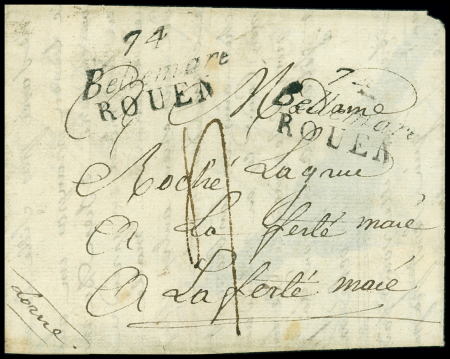 74
Bellemare
ROUEN
74
Bellemare
ROUEN
Madame
Roché Lagrue
A La ferté maié
A La ferté maié
4
dorne